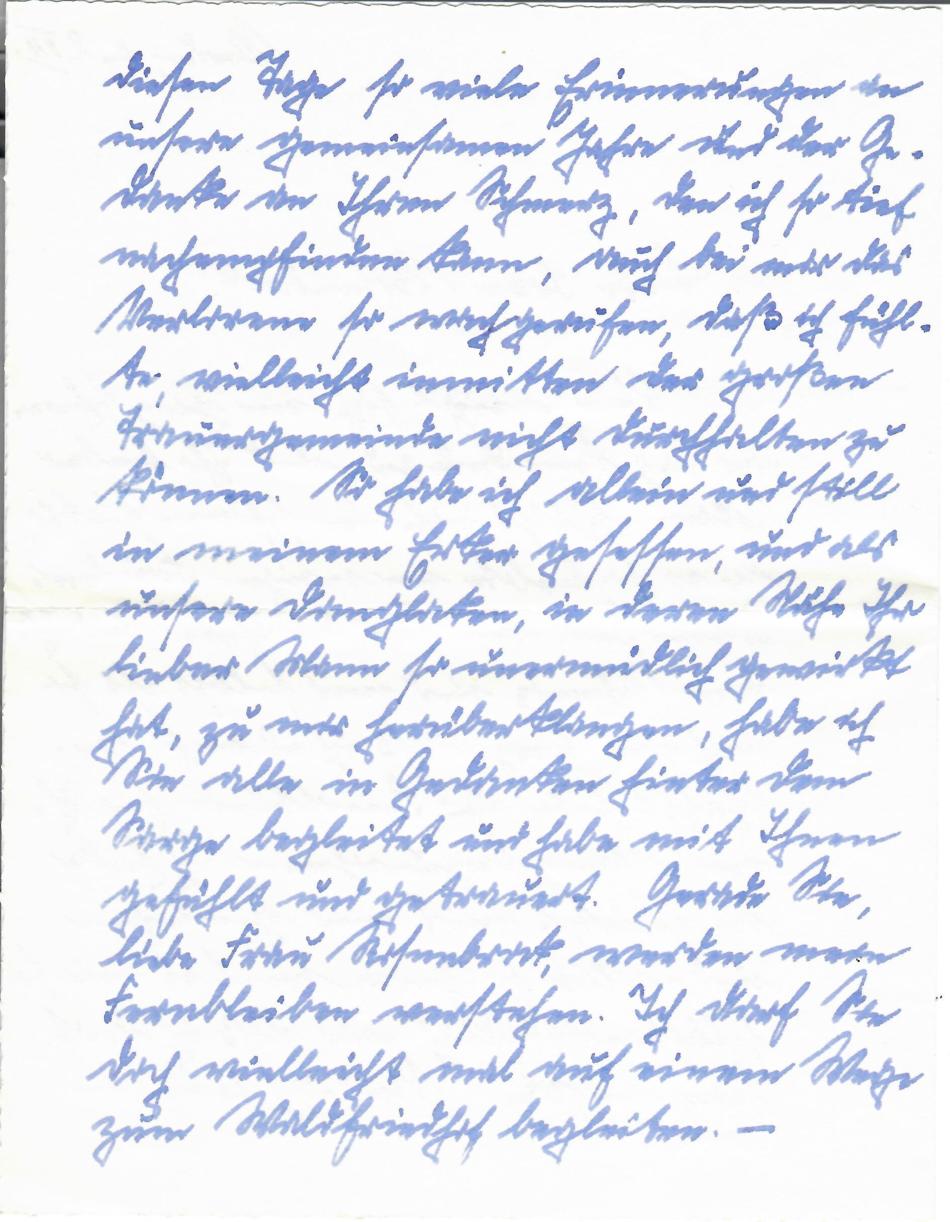 diesen Tage so viele Erinnerungen an
unsere gemeinsamen Jahre und der Ge-
danke an Ihren Schmerz, den ich so tief
nachempfinden kann, auch bei mir das
Verlorene so wachgerufen, daß ich fühl-
te, vielleicht inmitten der großen
Trauergemeinde nicht durchhalten zu
können. So habe ich allein und still
in meinem Erker gesessen, und als
unsere Domglocken, in deren Nähe Ihr
lieber Mann so unermüdlich gewirkt
hat, zu mir herüberklangen, habe ich
Sie alle in Gedanken hinter dem
Sarge begleitet und habe mit Ihnen
gefühlt und getrauert. Gerade Sie,
liebe Frau werden mein
Fernbleiben verstehen. Ich darf Sie
doch vielleicht mal auf einem Wege
zum Waldfriedhof begleiten. —